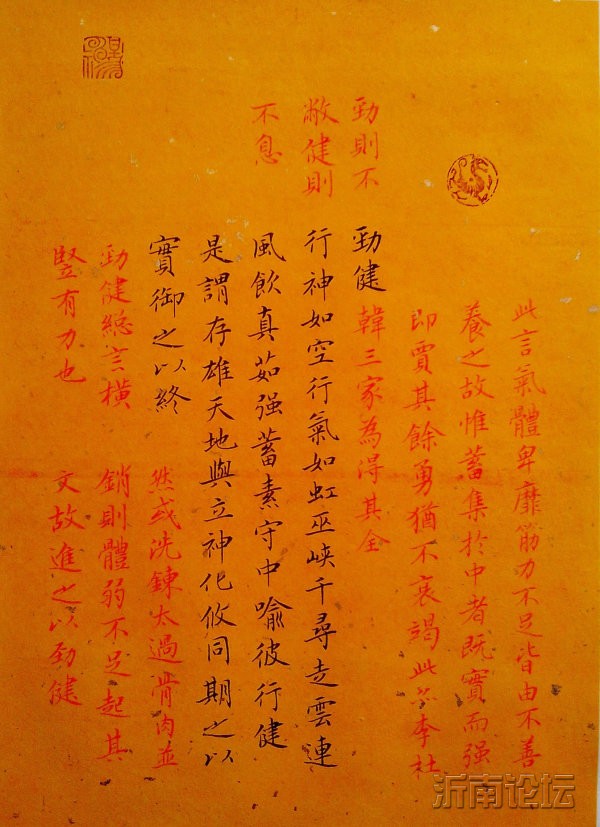 此言氣體卑靡筋力不足皆由不善
養之故惟蓄集於中者既實而强
即賈其餘勇猶不衰竭此李杜
韓三家為得其全
勁則不
敝健則
不息
勁健
行神如空行氣如虹巫峽千尋走雲連
風飲真茹强蓄素守中喻彼行健
是謂存雄天地與立神化攸同期之以
實御之以終
然或洗鍊太過肯肉並
銷則體弱不足起其
文故進之以勁健
勁健總言橫
豎有力也
沂南论坛